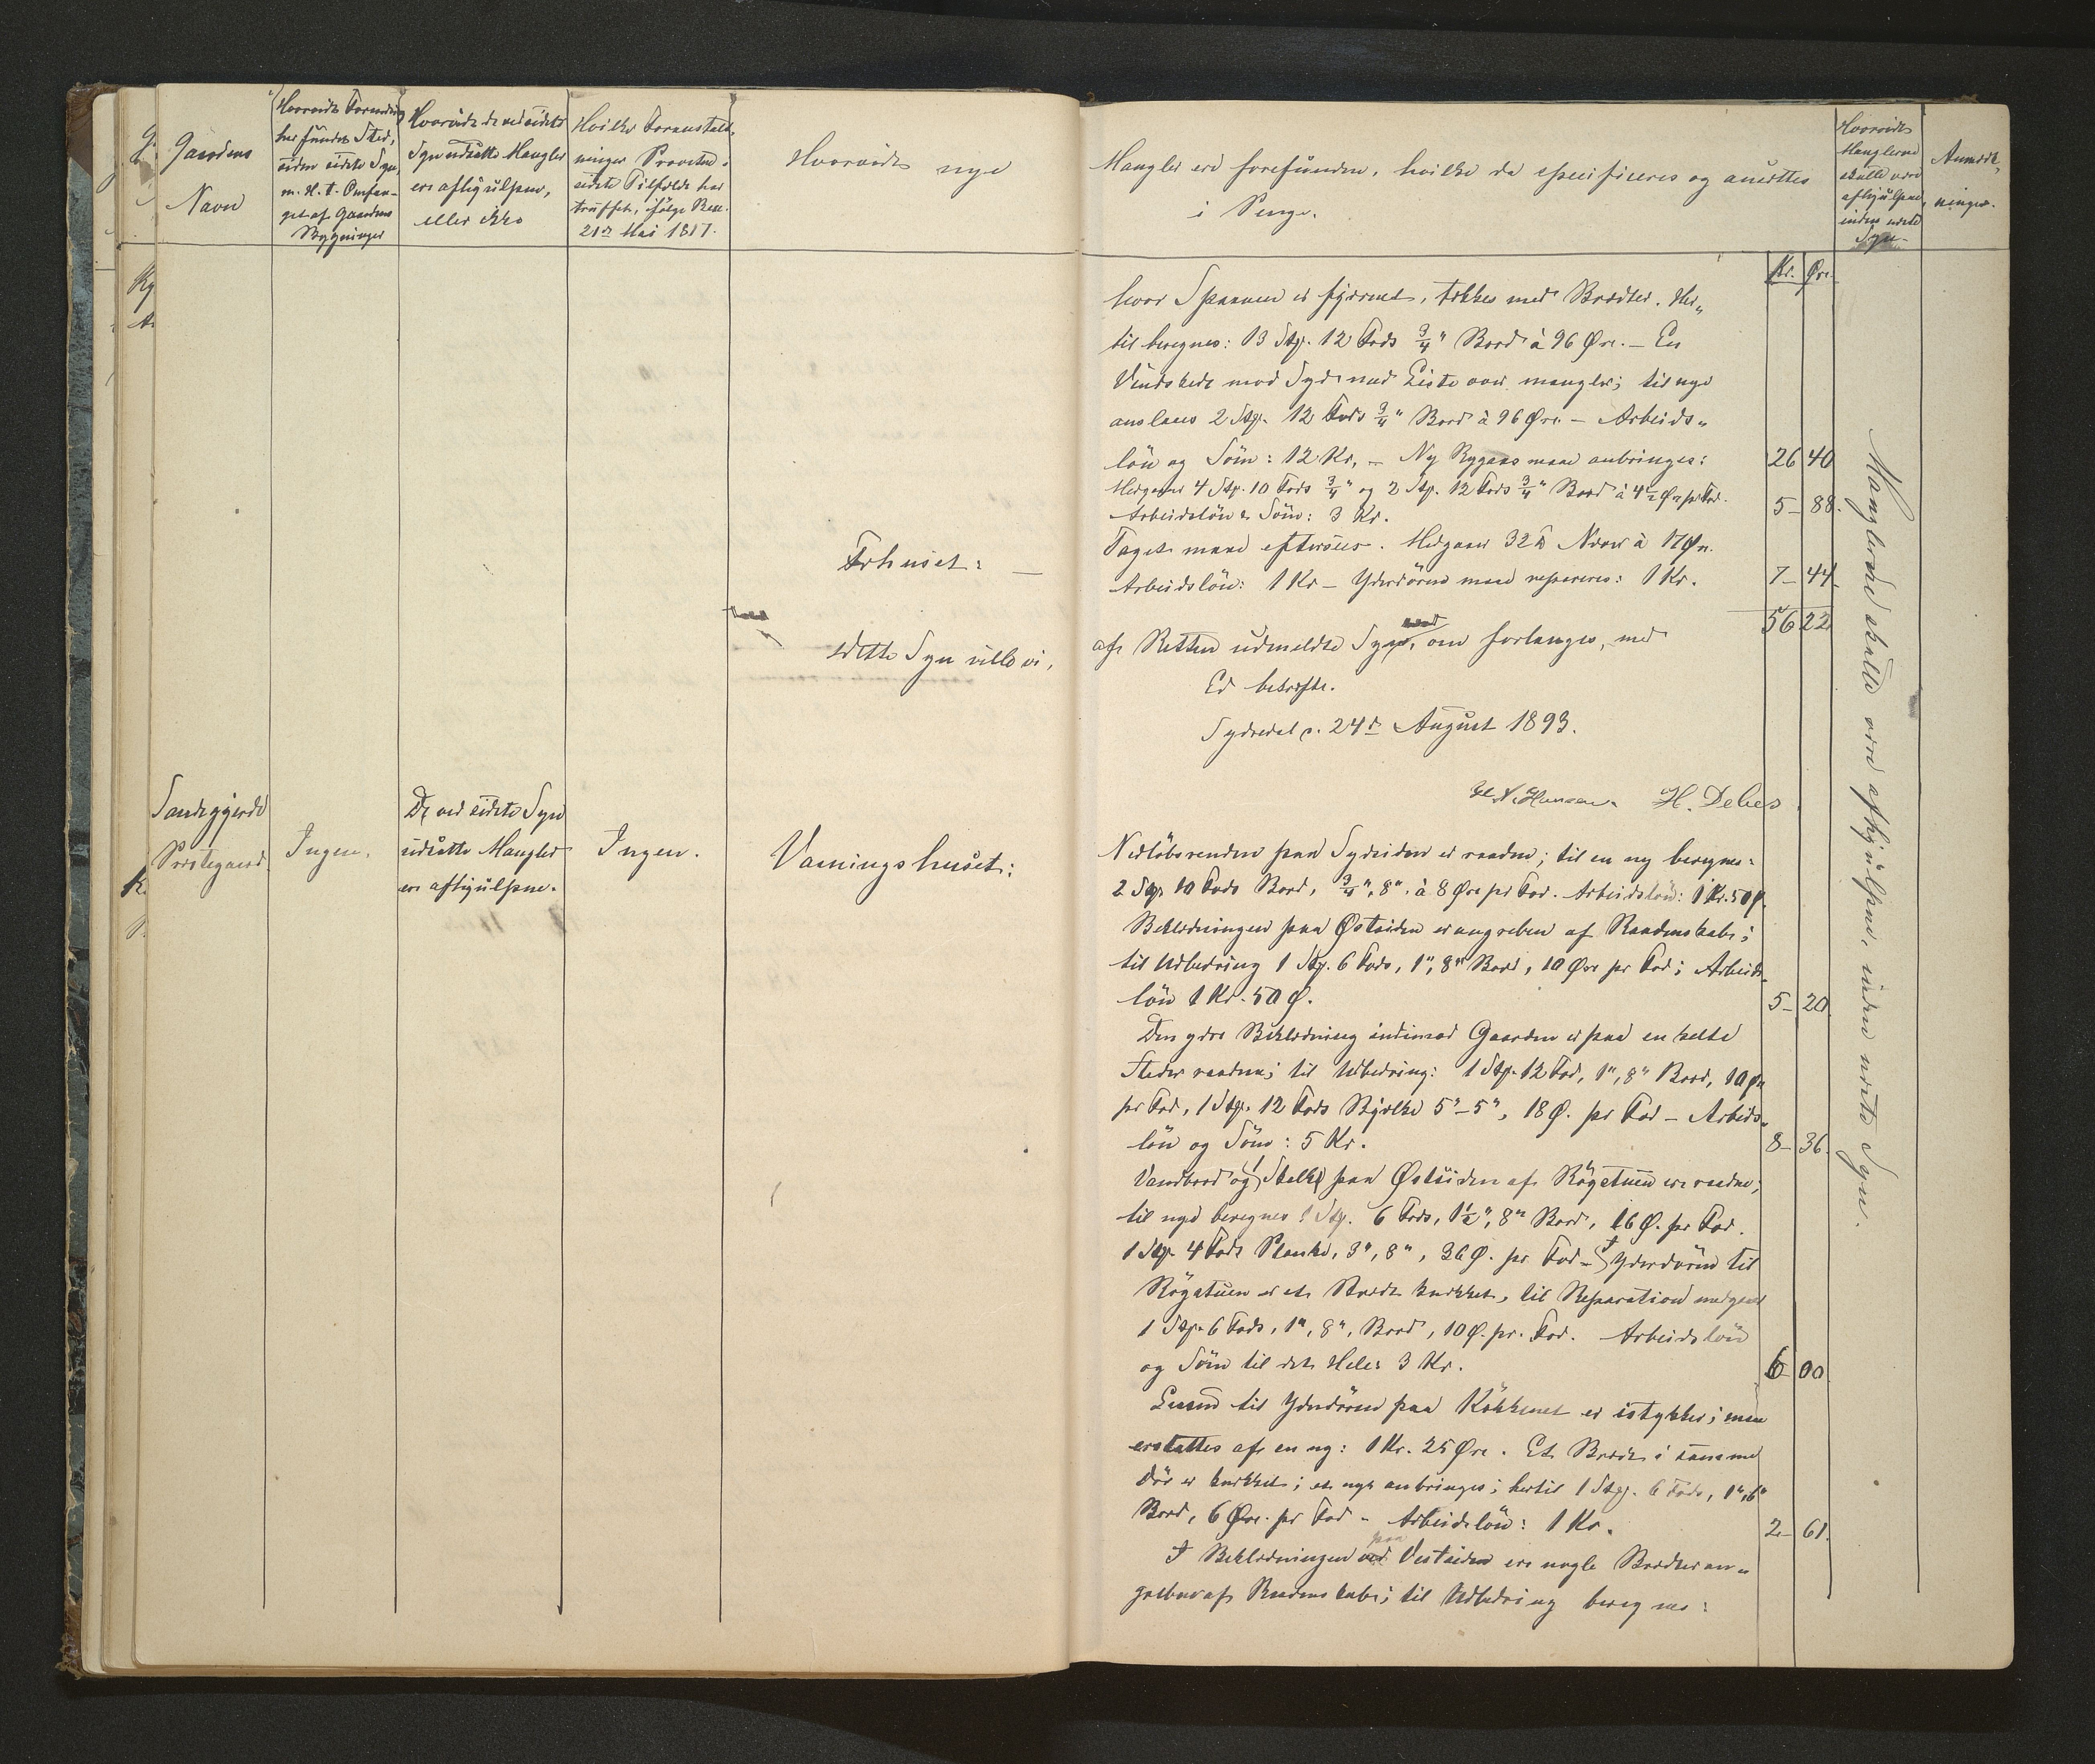 Gaardens
Navn
Hvorvidt Forandring
har fundet Sted,
siden sidste Syn
m. H. t. Omfan-
get af Gaardens
Bygninger
Hvorvidt de ved sidste
Syn udsatte Mangler
ere afhjulpne,
eller ikke
Hvilke Foranstalt-
ninger Provsten i
sidste Tilfælde har
truffet, ifølge Res.
21de Mai 1817.
Hvorvidt nye
Mangler ere forefundne, hvilke da specificeres og ansættes
i Penge.
Hvorvidt
Manglerne
skulle være
afhjulpne,
inden næste
Syn
Anmærk-
ninger.
Kr. Øre
hvor Spaanen er fjærnet, tækkes med Brædter. Her„
til beregnes: 13 Stp. 12 Fods 3/4" Bord à 96 Øre. – En
Vindskede mod Syd med Liste over mangler; til nye
anslaaes 2 Stp. 12 Fods 3/4" Bord à 96 Øre – Arbeids„
løn og Söm: 12 Kr. – Ny Rygaas maa anbringes: 26 40
Medgaaer 4 Stp. 10 Fods 3/4" og 2 Stp. 12 Fods 3/4" Bord à 4 1/2 Øre pr Fod.
Arbeidslön & Söm: 3 Kr. 5– 88.
Forhuset: –
Taget maa eftersees. Medgaaer 32 ℔ Næver à 17 Ør.
Arbeidslön: 1 Kr – Yderdören maa repareres: 1 Kr. 7– 44
56 22
dette Syn ville vi,
af Retten udmeldte Syn, om forlanges, med
Ed bekræfte.
Sydredal d. 24de August 1893.
Hansen. H. Debes
Sandegjerde
Præstegaard.
Ingen.
De ved sidste Syn
udsatte Mangler
ere afhjulpne.
Ingen.
Vaaningshuset:
Nedlöbsrenden paa Sydsiden er raaden; til en ny beregnes:
2 Stp. 10 Fods Bord, 3/4", 8", à 8 Øre pr Fod. Arbeidslön: 1 Kr. 50 Ø.
Beklædningen paa Østsiden er angreben af Raaddenskab;
til Udbedring 1 Stp. 6 Fods, 1", 8" Bord, 10 Øre pr Fod; Arbeids-
lön 1 Kr. 50 Ø. 5– 20
Den ydre Beklædning indimod Gaarden er paa enkelte
Steder raaden; til Udbedring: 1 Stp. 12 Fod, 1", 8" Bord, 10 Ør
pr Fod, 1 Stp. 12 Fods Bjælke 5"–5", 18 Ø. pr Fod – Arbeids„
lön og Söm: 5 Kr. 8– 36.
Vandbord og 1 Stolpe paa Østsiden af Rögstuen ere raadne;
til nye beregnes 1 Stp. 6 Fods, 1 1/2", 8" Bord, 16 Ø. pr Fod.
1 Stp. 4 Fods Planke, 3", 8", 36 Ø. pr Fod – I Yderdören til
Rögstuen er et Brædt knækket, til Reparation medgaaer
1 Stp. 6 Fods, 1", 8", Bord, 10 Ø. pr. Fod. Arbeidslön
og Söm til det Hele: 3 Kr. 6 00
til Yderdören paa Kökkenet er istykker; maa
erstattes af en ny: 1 Kr. 25 Øre. Et Brædt i samme
Dör er knækket; et nyt anbringes; hertil 1 Stp. 6 Fods, 1", 6"
Bord, 6 Øre pr Fod – Arbeidslön: 1 Kr. 2– 61.
I Beklædningen paa Vestsiden ere nogle Brædder an„
grebne af Raaddenskab; til Udbedring beregnes:
Manglerne skulle være afhjulpne, inden næste Syn.